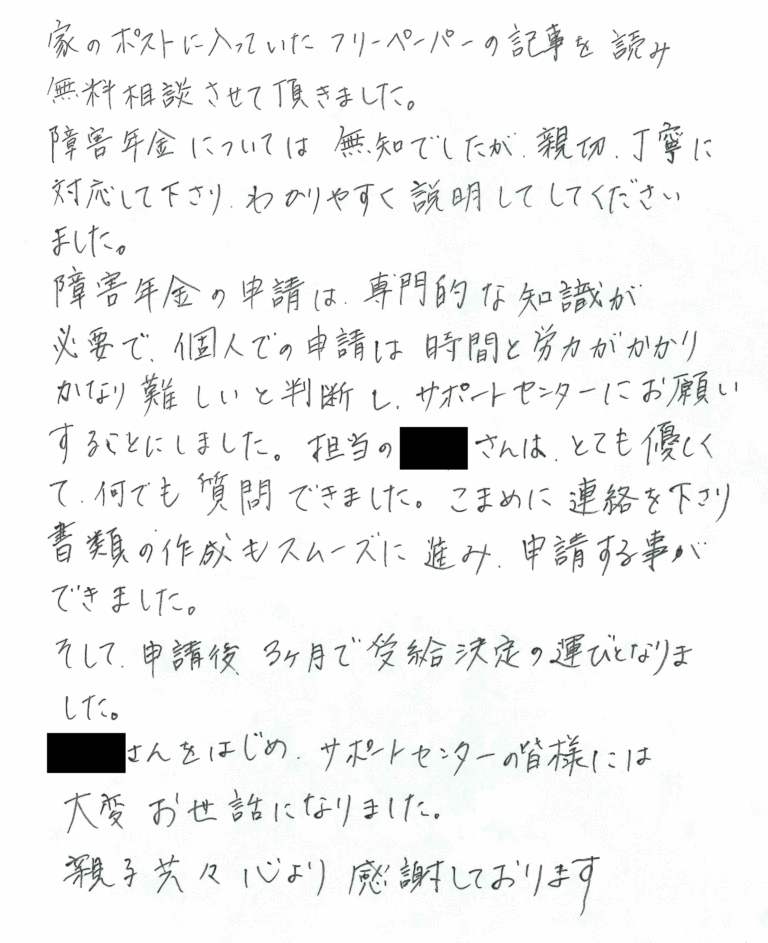 家のポストに入っていたフリーペーパーの記事を読み
無料相談させて頂きました。
障害年金については無知でしたが、親切、丁寧に
対応して下さり、わかりやすく説明してしてください
ました。
障害年金の申請は、専門的な知識が
必要で、個人での申請は時間と労力がかかり
かなり難しいと判断し、サポートセンターにお願い
することにしました。担当の
さんは、とても優しく
て、何でも質問できました。こまめに連絡を下さり
書類の作成もスムーズに進み、申請する事が
できました。
そして、申請後、3ヶ月で受給決定の運びとなりま
した。
さんをはじめ、サポートセンターの皆様には
大変お世話になりました。
親子共々心より感謝しております